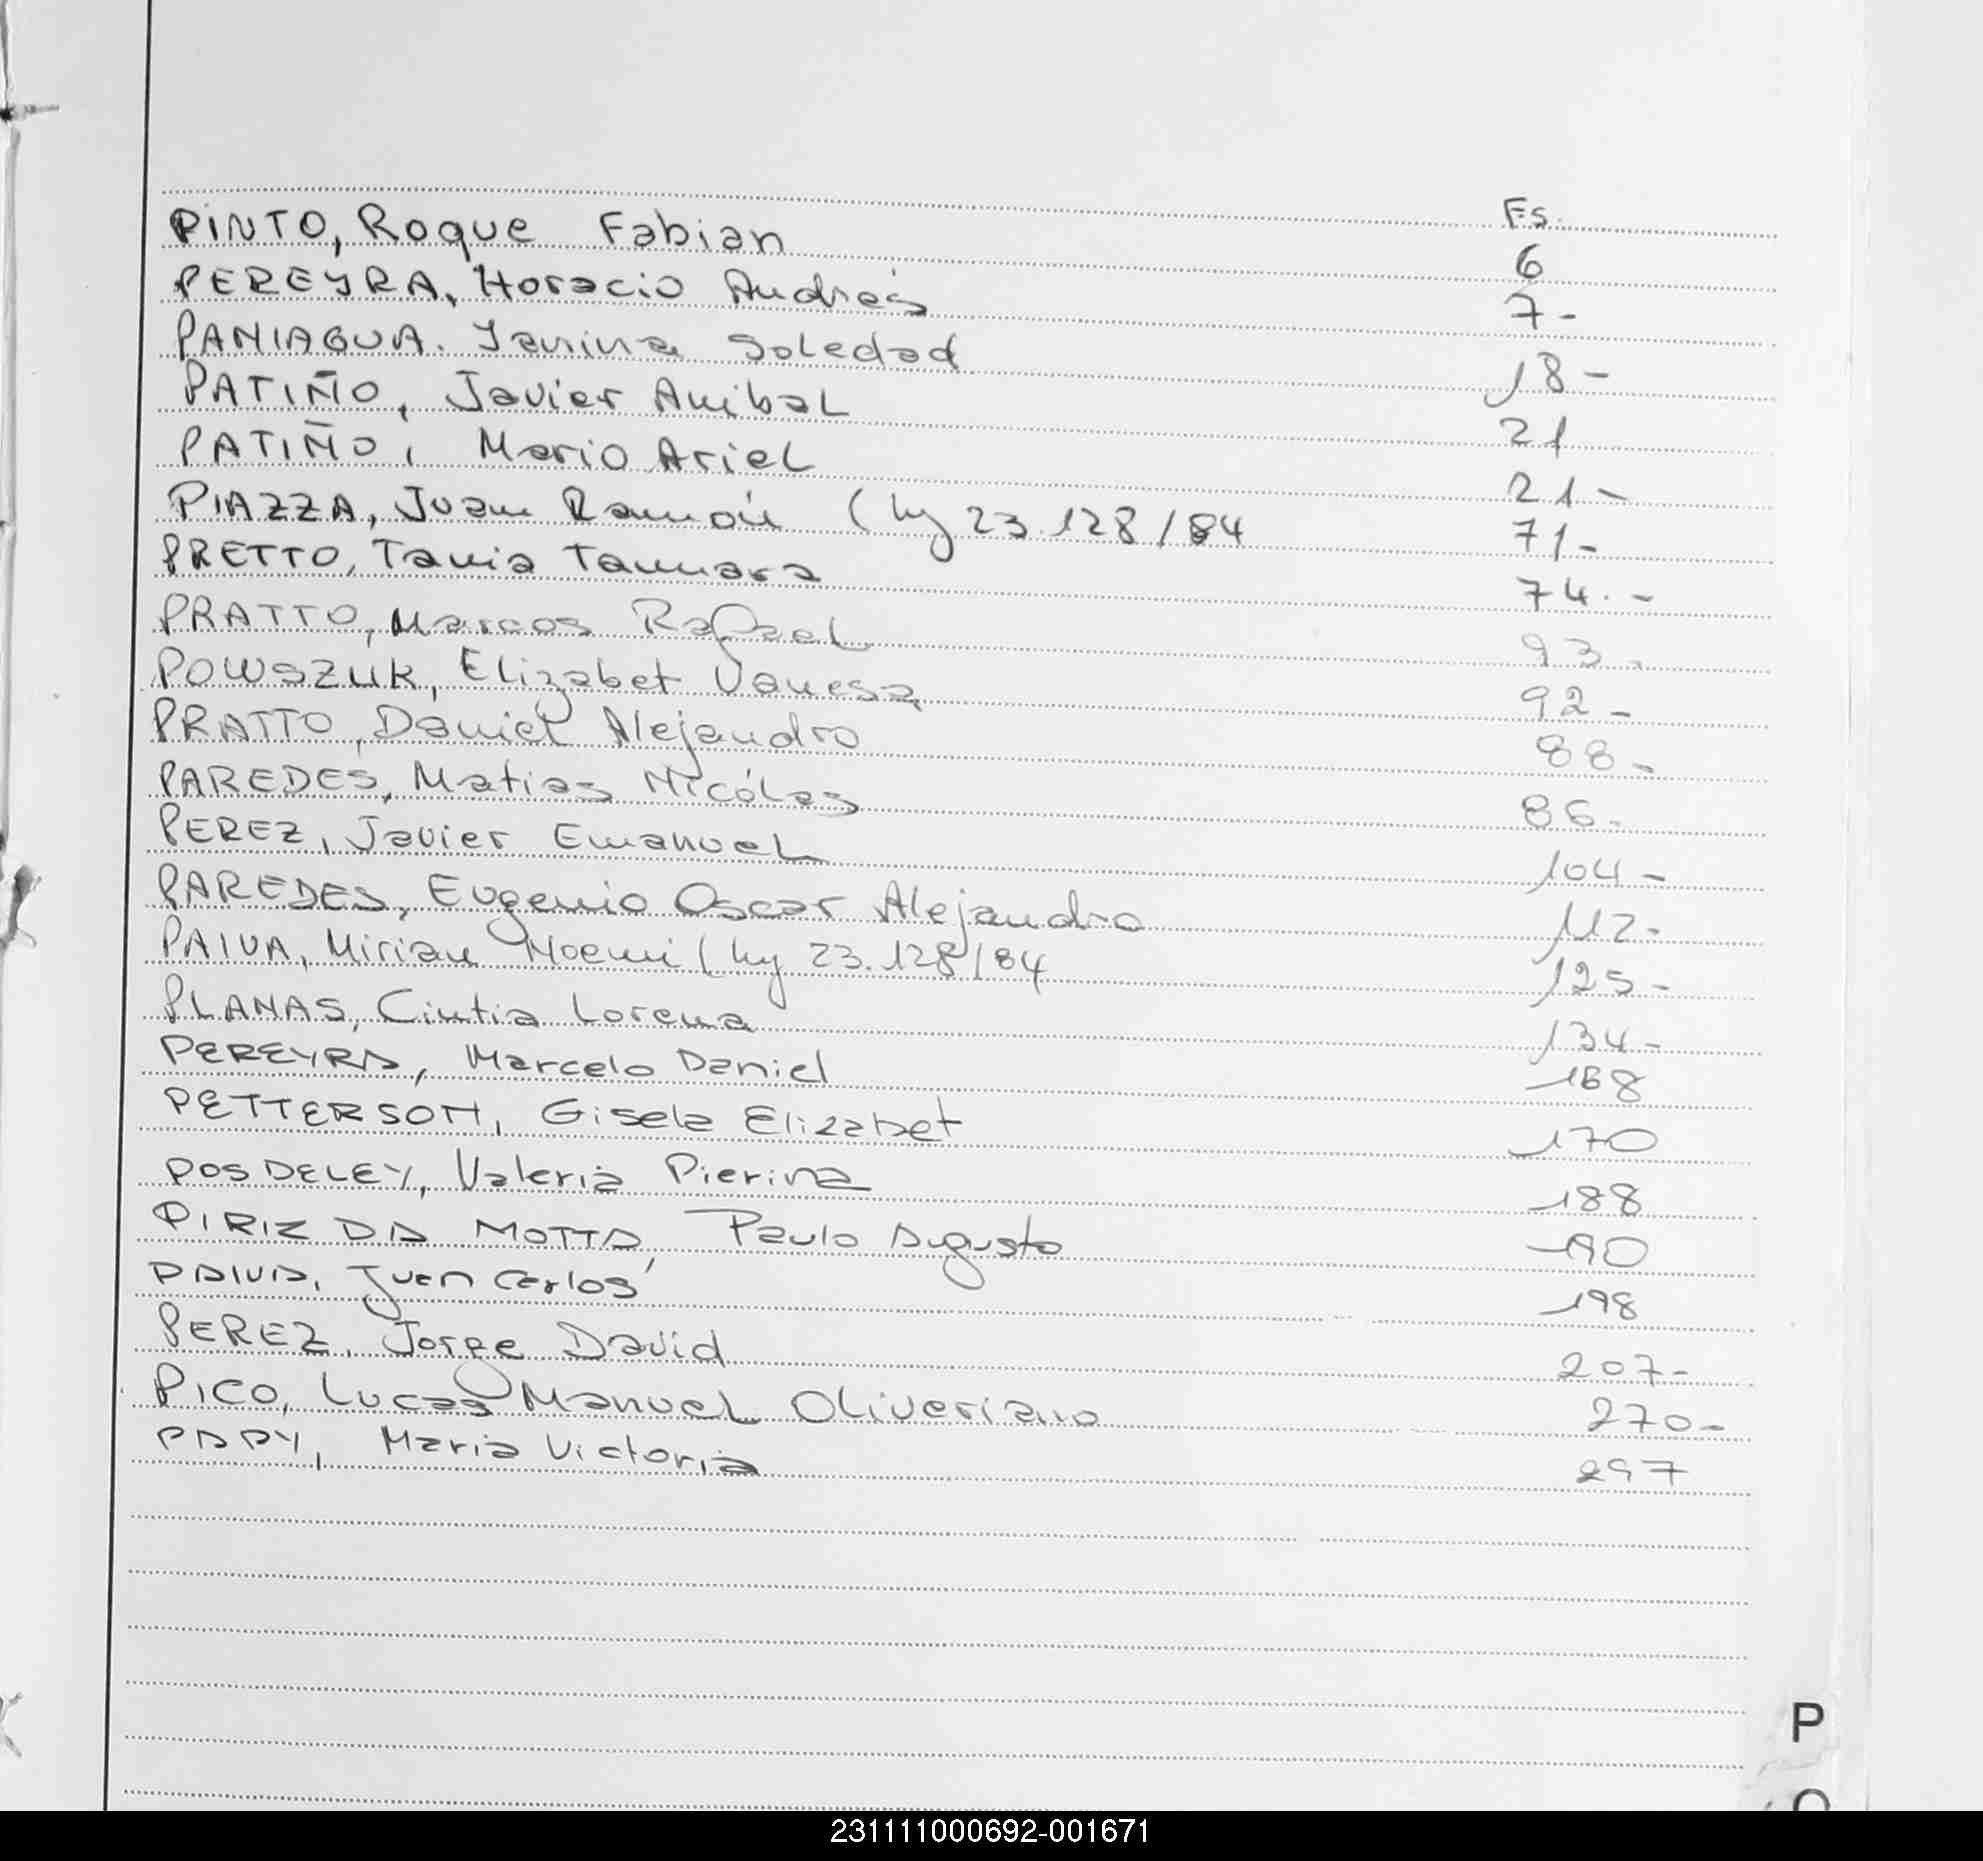 Fs.
PINTO, Roque Fabian 6
PEREYRA, Horacio Andrés 7-
PANIAGUA. Yanina Soledad 18-
PATIÑO, Javier Anibal 21
PATIÑO, Mario Ariel 21-
PIAZZA, Juan Ramón (Ley 23.128/84 71-
PRETTO, Tania Tamara 74.-
PRATTO, Marcos Rafael 93-
POWSZUK, Elizabet Vanesa 92-
PRATTO, Daniel Alejandro 88-
PAREDES, Matias Nicólas 86-
PEREZ, Javier Emanuel 104-
PAREDES, Eugenio Oscar Alejandro 112-
PAIVA, Mirian Noemi (Ley 23.128/84 125-
PLANAS, Cintia Lorena 134-
PEREYRA, Marcelo Daniel 168
PETTERSON, Gisela Elizabet 170
POSDELEY, Valeria Pierina 188
PIRIZ DA MOTTA, Paulo Augusto 190
PAIVA, Juan Carlos 198
PEREZ, Jorge David 207-
PICO, Lucas Manuel Oliveriano 270-
PAPY, Maria Victoria 297
P
231111000692-001671